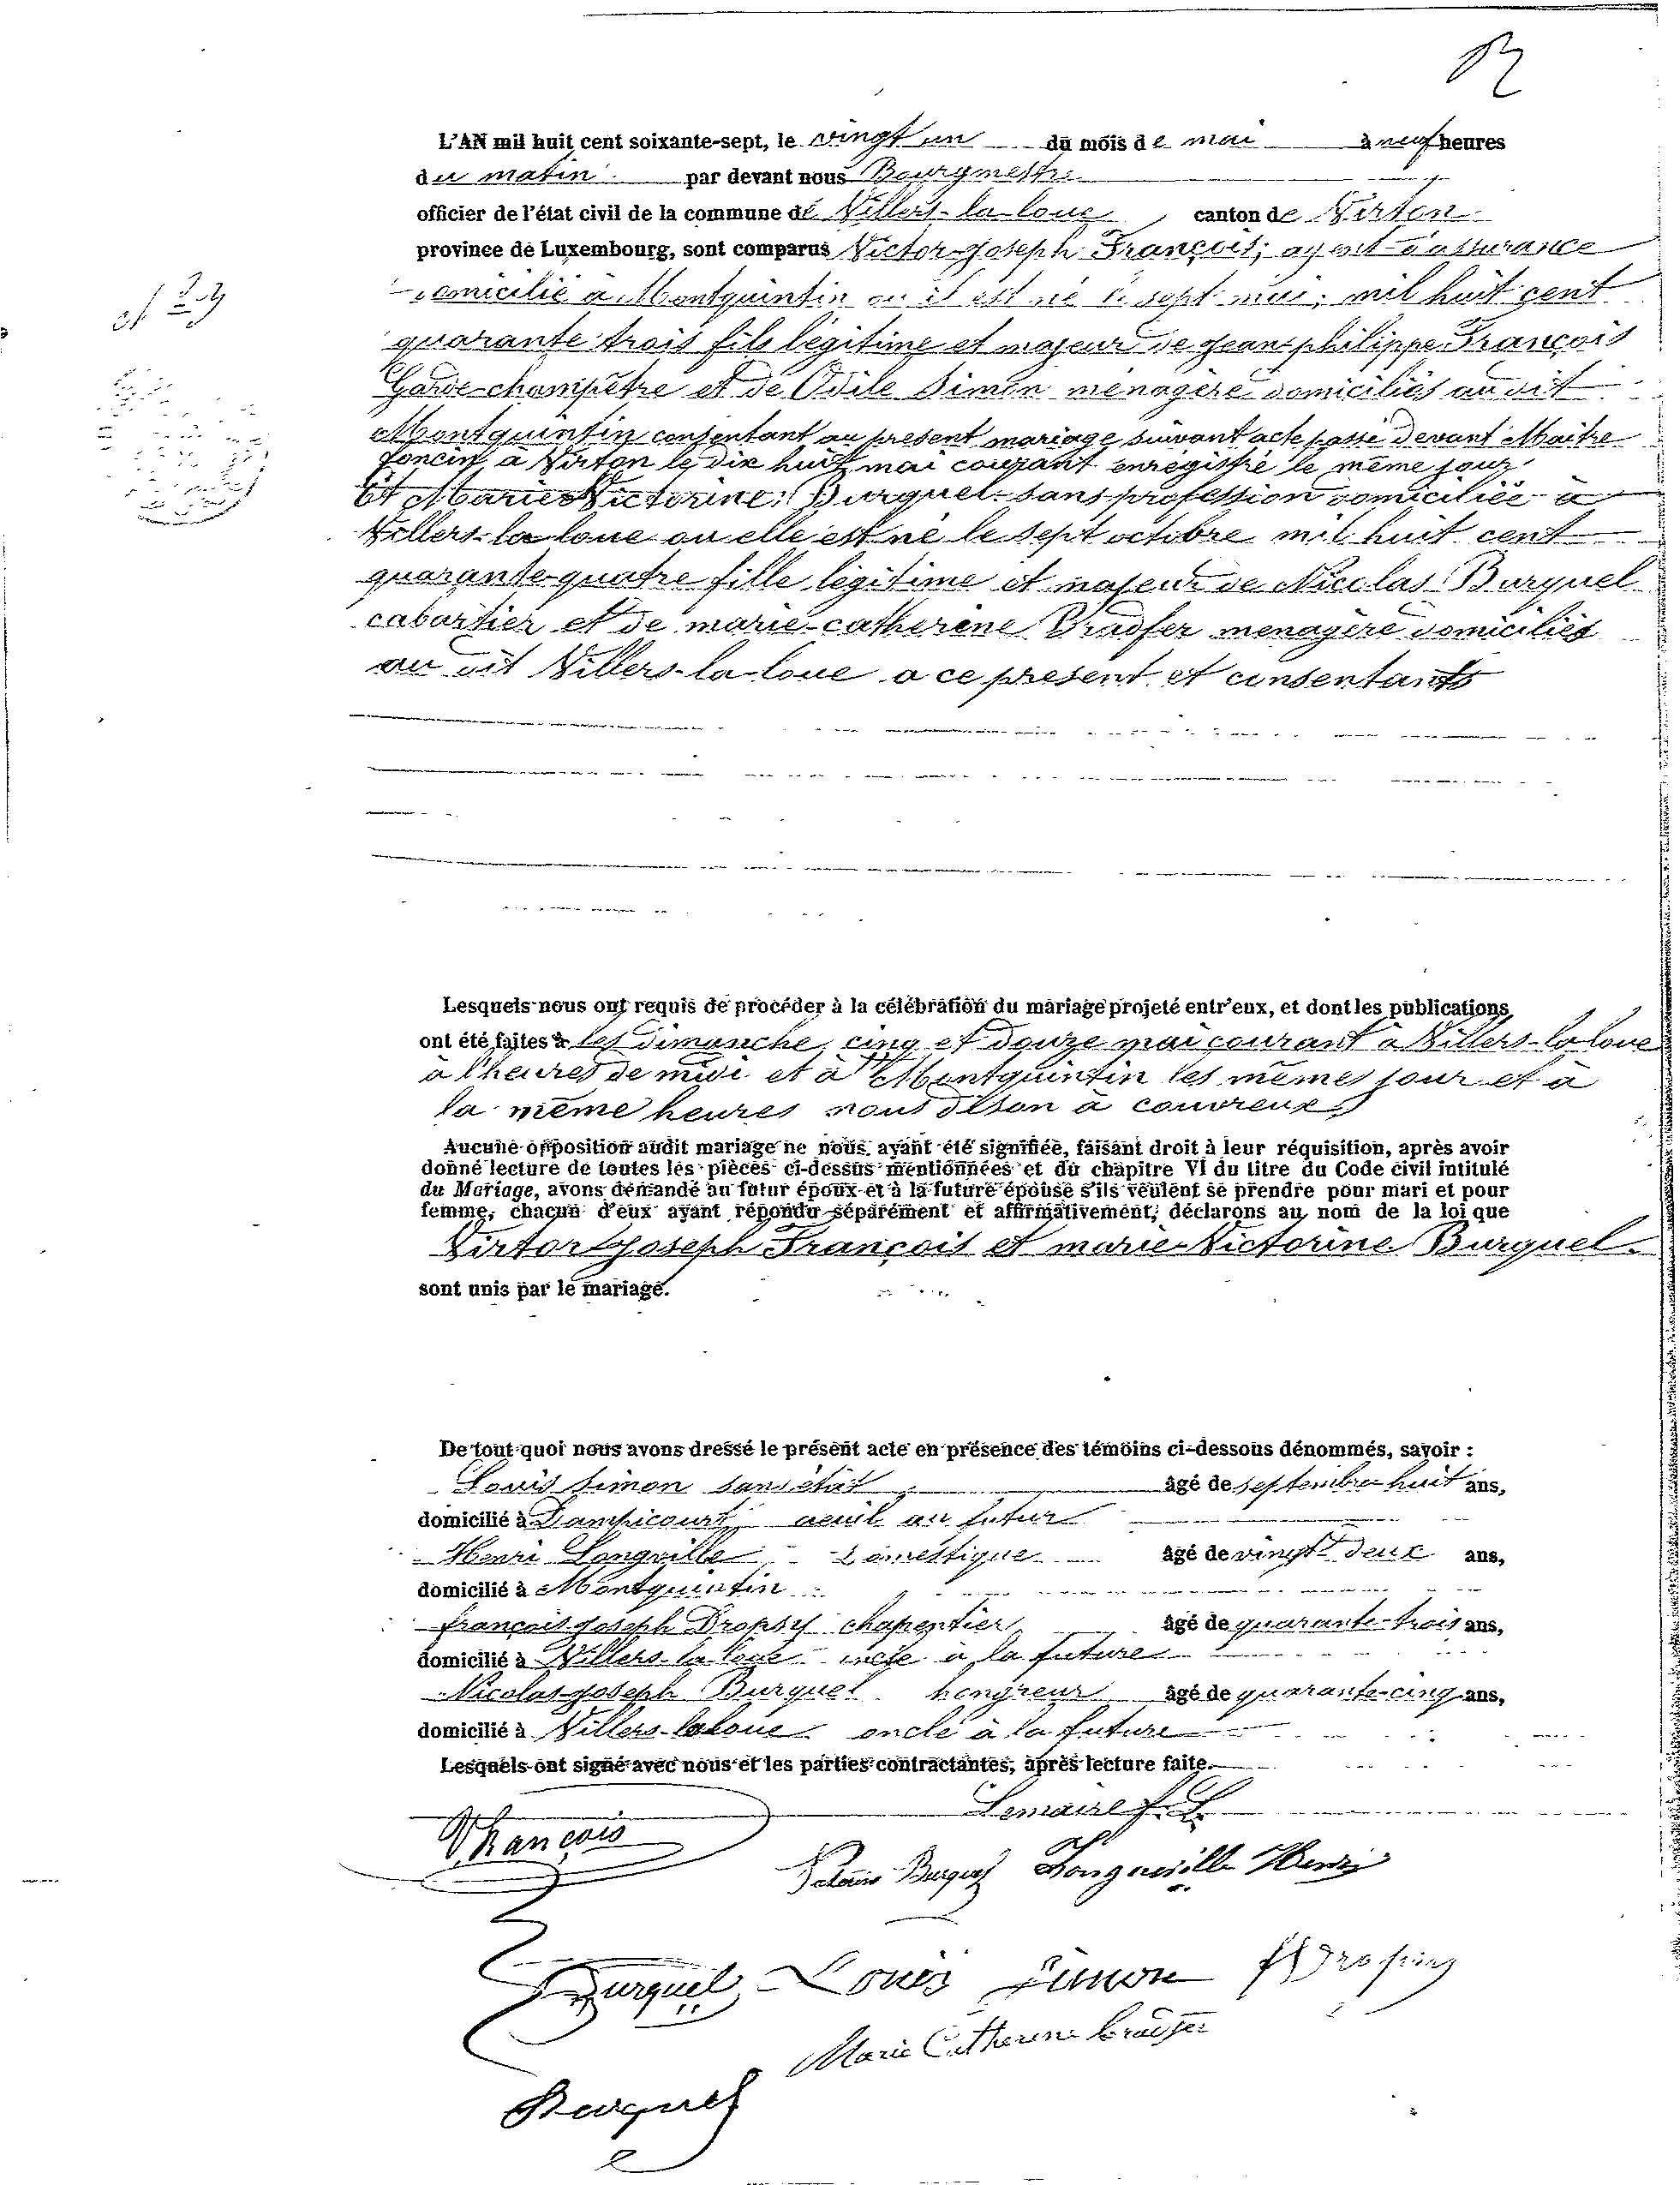 L'AN mil huit cent soixante-sept, le vingt un du mois de mai à neuf heures
du matin par devant nous Bourgmestre
officier de l'état civil de la commune de Villers-la-loue, canton de Virton
province de Luxembourg, sont comparus Victor-Joseph François, agent d'assurance
domicilié à Montquintin ou il est né le sept mai mil huit cent
N° 29
quarante trois fils légitime et majeur de Jean-philippe François
Garde-champêtre et de Odile Simon ménagère domiciliés au dit
Montquintin consentant au present mariage suivant acte passé devant Maître
foncin à Virton le dix huit mai courant enregistré le même jour
Et Marie Victorine Burquel sans profession domiciliée à
Villers-la-loue ou elle est né le sept octobre mil huit cent
quarante quatre fille légitime et majeur de Nicolas Burquel
cabartier et de marie-catherine Bradfer menagère domiciliés
au dit Villers-la-loue a ce present et consentants
Lesquels nous ont requis de procéder à la célébration du mariage projeté entr'eux, et dont les publications
ont été faites à les dimanche cinq et douze mai courant à Villers-la loue
à l'heures de midi et à Montquintin les mêmes jour et à
la même heures
Aucune opposition audit mariage ne nous ayant été signifiée, faisant droit à leur réquisition, après avoir
donné lecture de toutes les pièces ci-dessus mentionnées et du chapitre VI du titre du Code civil intitulé
du Mariage, avons demandé au futur époux et à la future épouse s'ils veulent se prendre pour mari et pour
femme, chacun d'eux ayant répondu séparément et affirmativement, déclarons au nom de la loi que
Victor Joseph François et marie-Victorine Burquel
sont unis par le mariage.
De tout quoi nous avons dressé le présent acte en présence des témoins ci-dessous dénommés, savoir :
Louis Simon sans état âgé de septembre huit ans,
domicilié à Dampicourt, aeuil au futur
Henri Longville, Domestique âgé de vingt deux ans,
domicilié à Montquintin
françois joseph Dropsy chapentier âgé de quarante-trois ans,
domicilié à Villers-la loue à la future
Nicolas-joseph Burquel hongreur âgé de quarante-cinq ans,
domicilié à Villers-laloue oncle à la future
Lesquels ont signé avec nous et les parties contractantes, après lecture faite.
Lemaire
V. François
Burquel Longueville Henri
Burquel Louis Simon
Marie Catherine Bradfer
Burquel